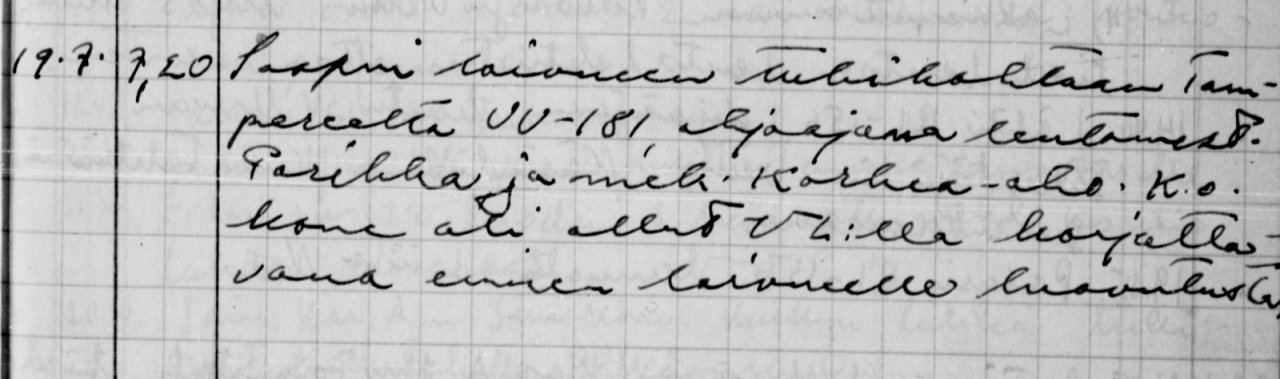 19.7. 7,20 Saapui laivueen tukikohtaan Tam-
pereelta VV-181, ohjaajana lentomest.
Parikka ja mek. Korhea-aho. K.o.
kone oli ollut VL:llä korjatta-
vana ennen laivueelle luovutusta,